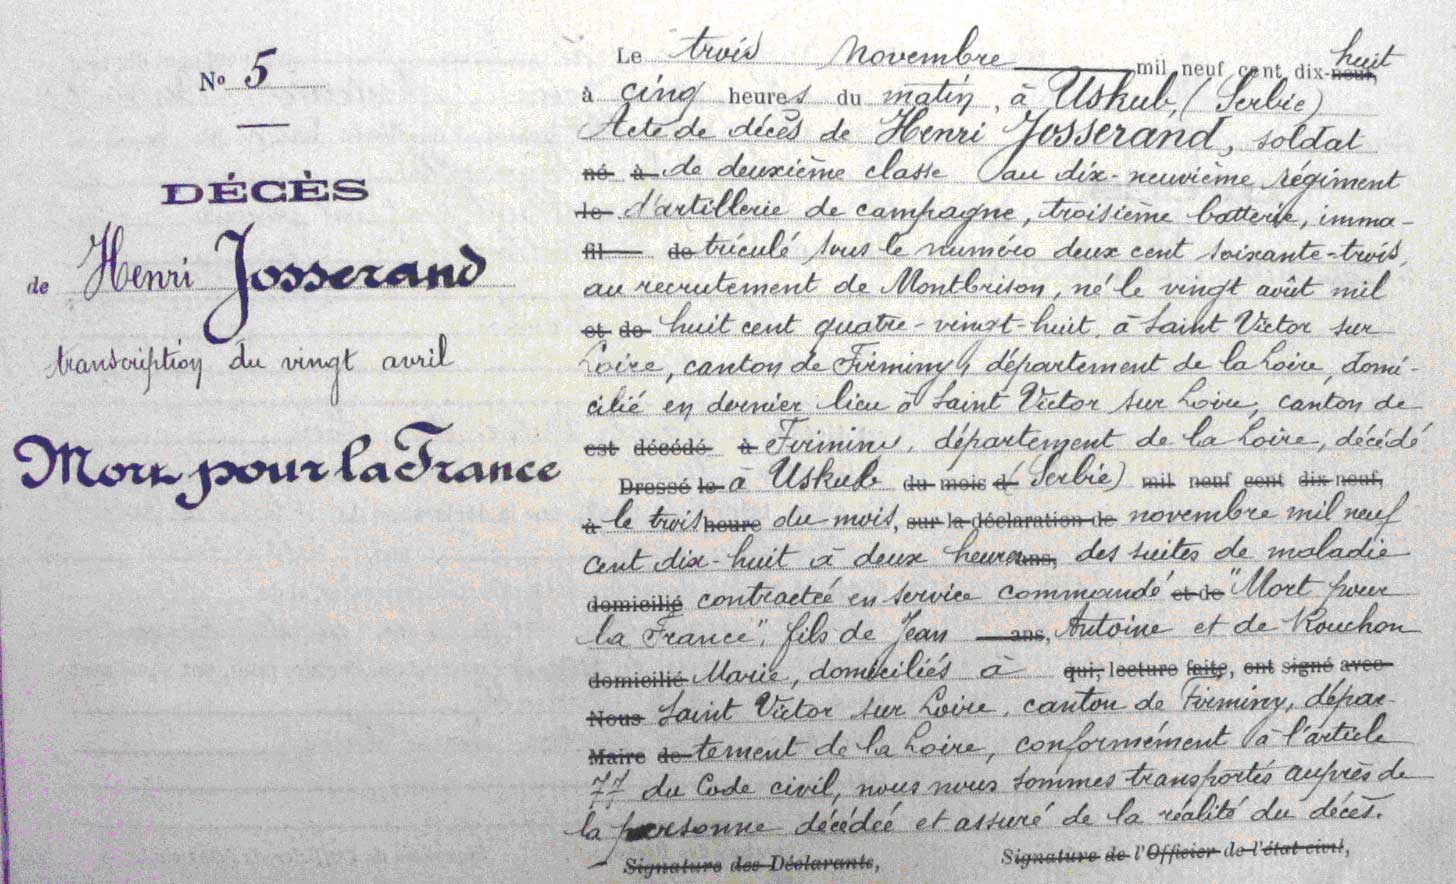 No 5
DÉCÈS
de Henri Josserand
transcription du vingt avril
Mort pour la France
Le trois novembre mil neuf cent dix-neuf, huit
à cinq heures du matin, à Uskub, (Serbie)
Acte de décès de Henri Josserand, soldat
né à de deuxième classe au dix-neuvième régiment
le d'artillerie de campagne, troisième batterie, imma-
fil de triculé sous le numéro deux cent soixante-trois,
au recrutement de Montbrison, né le vingt août mil
et de huit cent quatre-vingt-huit à Saint Victor sur
Loire, canton de Firminy, département de la Loire, domi-
cilié en dernier lieu à Saint Victor sur Loire, canton de
est décédé à Firminy, département de la Loire, décédé
Dressé le à Uskub du mois d (Serbie) mil neuf cent dix-neuf,
à le trois heure du mois, sur la déclaration de novembre mil neuf
cent dix-huit à deux heures ans, des suites de maladie
domicilié contractée en service commandé et de "Mort pour
la France", fils de Jean ans, Antoine et de Rouchon
domicilié Marie, domiciliés à qui, lecture faite, ont signé avec
Nous Saint Victor sur Loire, canton de Firminy, dépar-
Maire de tement de la Loire, conformément à l'article
77 du Code civil, nous nous sommes transportés auprès de
la personne décédée et assuré de la réalité du décès.
Signature des Déclarants, Signature de l'Officier de l'état civil,